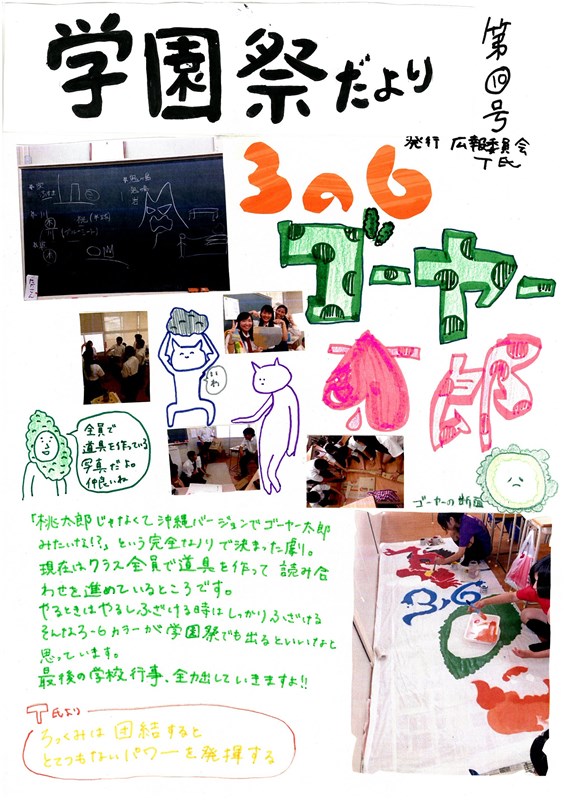 学園祭だより
第⑩号
発行 広報委員会
T氏
3の6
ゴーヤー
太郎
いわ
全員で
道具を作っている
写真だよ。
仲良いね
ゴーヤーの断面
「桃太郎じゃなくて沖縄バージョンでゴーヤー太郎
みたいな!?」という完全なノリで決まった劇。
現在はクラス全員で道具を作って 読み合
わせを進めているところです。
やるときはやるしふざける時はしっかりふざける
そんなろー6カラーが学園祭でも出るといいなと
思っています。
最後の学校行事、全力出していきますよ!!
T氏より
ろっくみは 団結すると
とてつもないパワーを発揮する
3-6